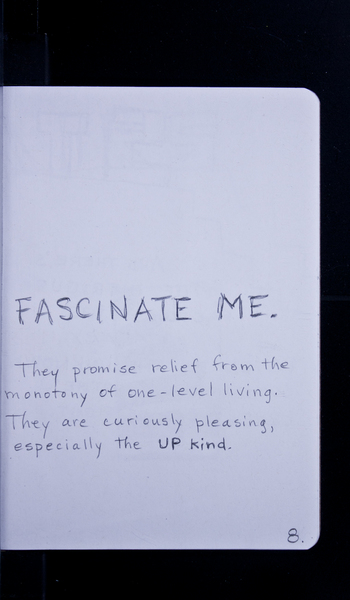 FASCINATE ME.
They promise relief from the
monotony of one-level living.
They are curiously pleasing,
especially the UP kind.
8.